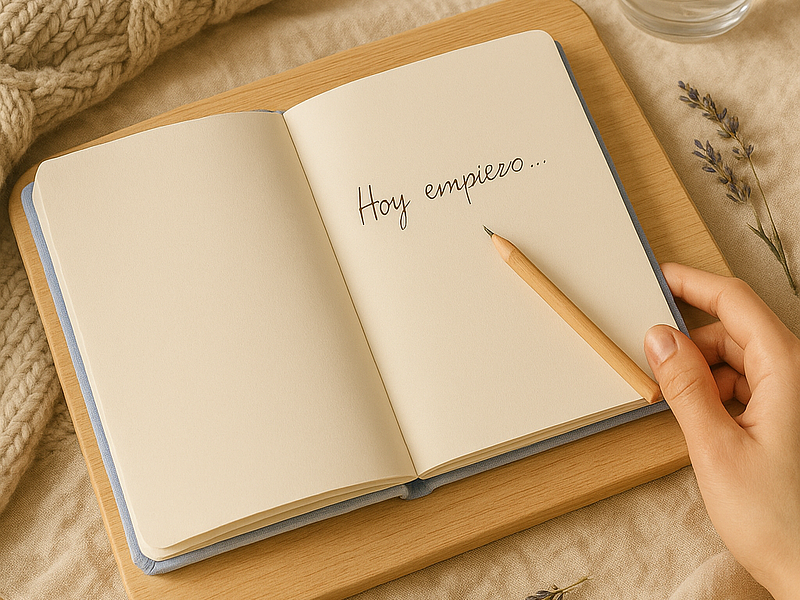 Hoy empiezo...